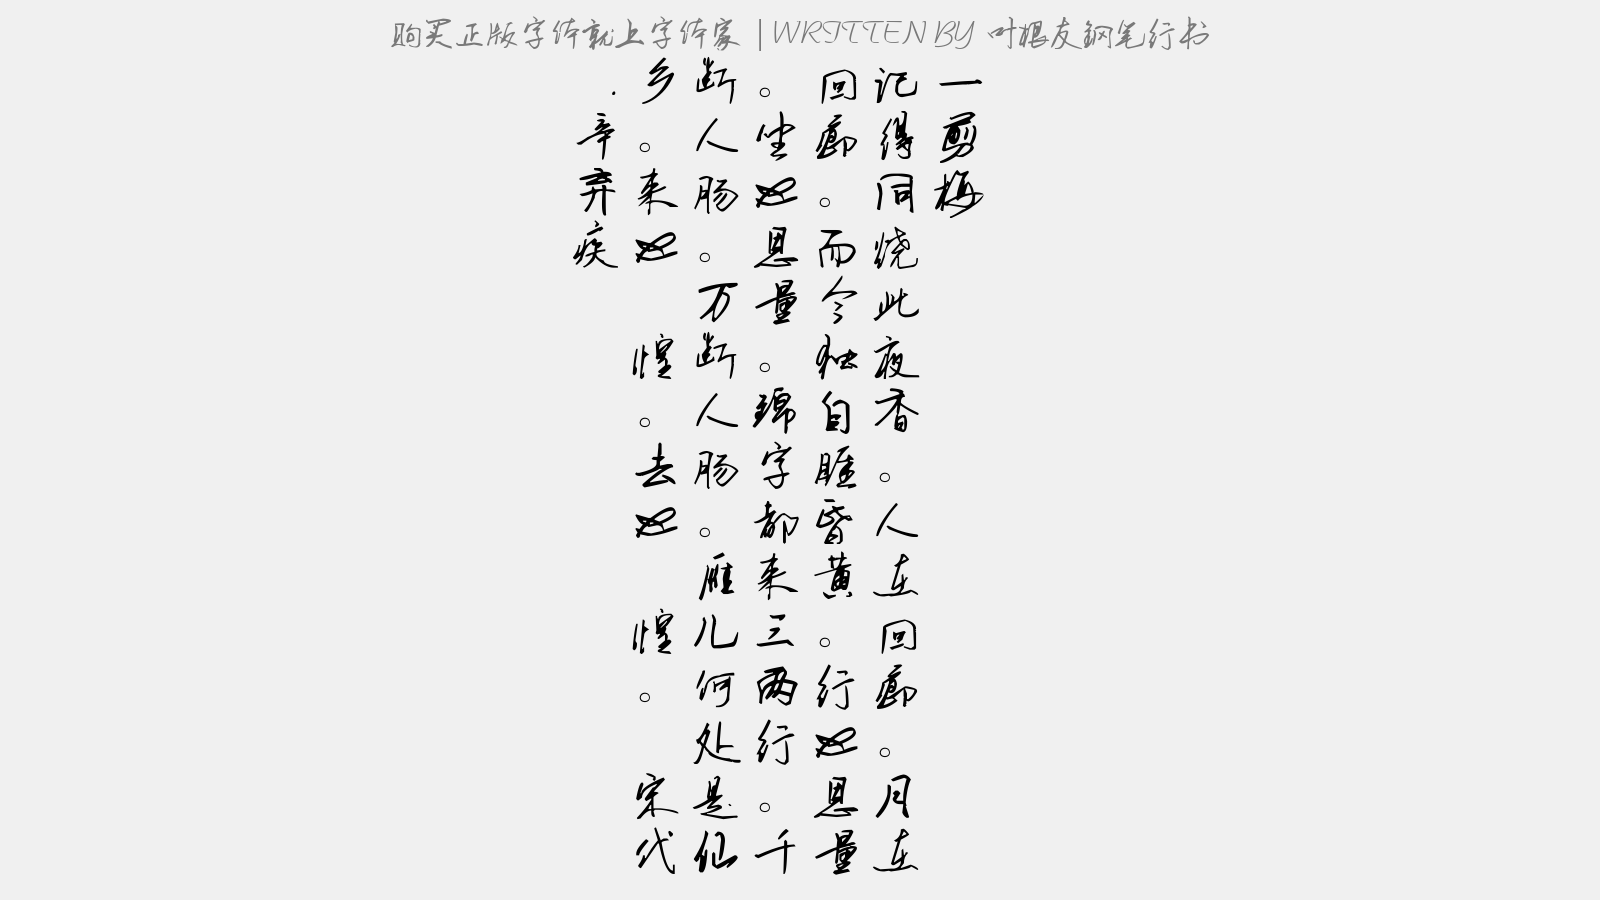 购买正版字体就上字体家 | WRITTEN BY 叶根友钢笔行书
一剪梅
记得同烧此夜香。人在回廊。月在
回廊。而今独自睚昏黄。行也思量
。坐也思量。锦字都来三两行。千
断人肠。万断人肠。雁儿何处是仙
乡。来也 惶。去也 惶。 宋代
·辛弃疾